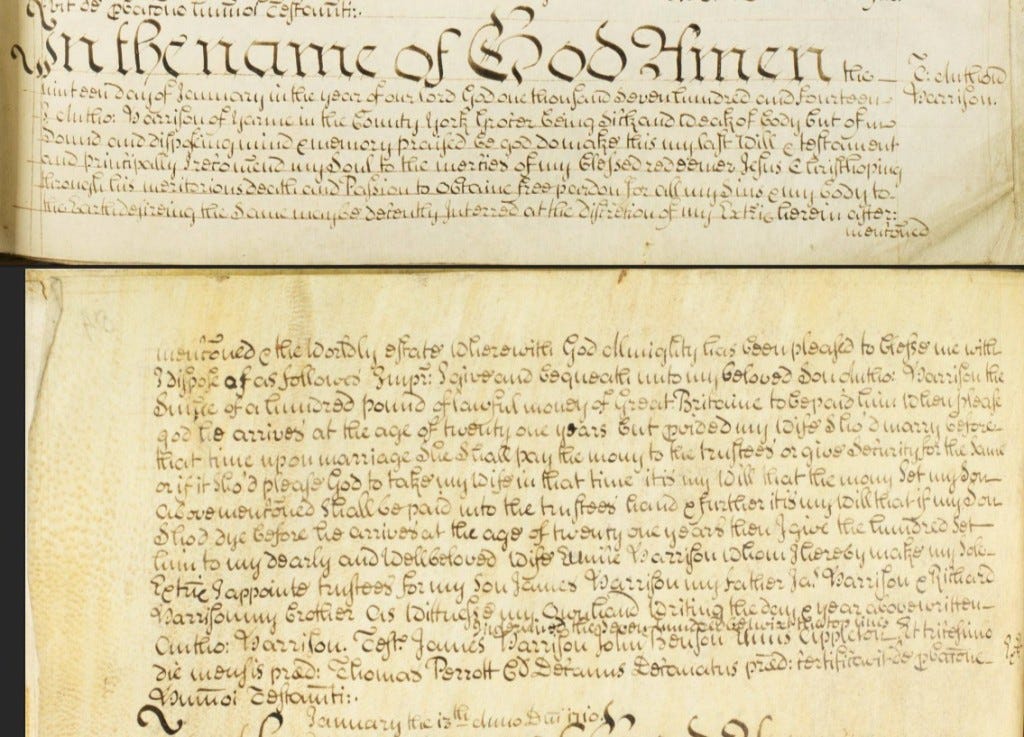 de probatone hummoi Testamti:.
In the name of God Amen the
T: Anthond
Harrison.
ninteen day of January in the year of our Lord God one thousand Seven hundred and fourteen
I Antho: Harrison of Yarme in the County York Grocer being Sick and Weak of body but of
Sound and disposing mind & memory praised be god do make this my last Will & testament
and principally I recomend my Soul to the mercies of my blessed redeemer Jesus Christ hoping
through his meritorious death and Passion to obtaine free pardon for all my Sins & my body to
the Earth desireing the Same may be decently Interred at the discretion of my Extric herein after:
mentoned
mentoned & the Wordly estate wherewith God Almighty has been pleased to blesse me with
I dispose of as follows Impr: I give and bequeath unto my beloved Son Antho: Harrison the
Summe of a hundred pound of lawful money of Great Britaine to be paid him when please
god he arrives at the age of twenty one years but provided my Wife Sho'd marry before
that time upon marriage She Shall pay the mony to the trustees or give Security for the Same
or if it Sho'd please God to take my Wife in that time it is my Will that the mony Set my Son
above mentoned Shall be paid into the trustees hand & further it is my Will that if my Son
Sho'd dye before he arrives at the age of twenty one years then I give the hundred Set
him to my dearly and Wellbeloved Wife Anne Harrison Whom I hereby make my Sole
Extric I appointe trustees for my Son James Harrison my father Jas Harrison & Richard
Harrison my brother As Wittnesse my hand Writing the day & year above written
the top lines
Antho: Harrison. Test. James Harrison John Henson Anne Appleton Et tricesimo
die mensis præd: Thomas Perrott Decanus Decanatus præd: certificavit de probatone
Hummoi Testamti:.
January the 13th Anno Dni 1710